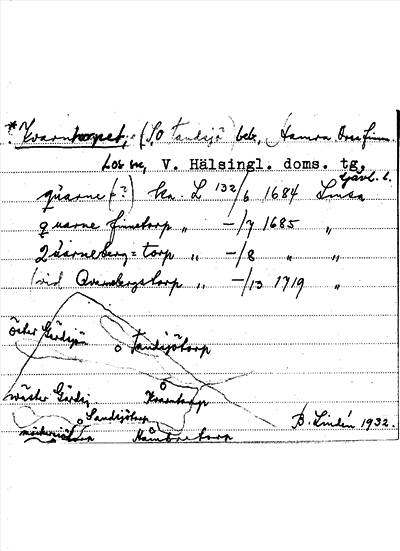 *Kvarntorpet, (SO Tandsjö) beb., Hamra Orsa finnm.
Los sn, V. Hälsingl. doms. tg,
Gävl. l.
quarne (?) Ka. L 132/6 1684 Linsa
quarne finnetorp „ -/7 1685 „
Quarneberg=torp „ -/8 „ „
(vid Quarnbergstorp „ -/13 1719 „
öster Gärdsjön
Tandsjötorp
wäster Gärdsj
Kvarntorp
Sandsjötorp
Hambretorp
B. Lindén 1932.